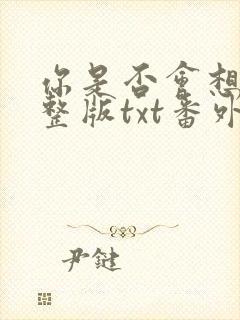 你是否会想
整版txt番外
尹鍵